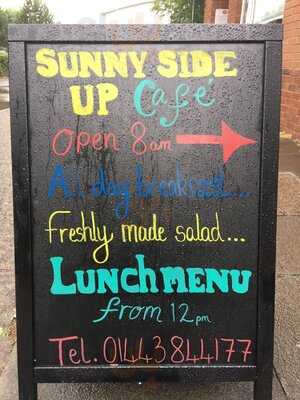 SUNNY SIDE
UP Café
Open 8am
All day breakfast...
Freshly made salad...
LUNCH MENU
from 12pm
Tel. 01443844177